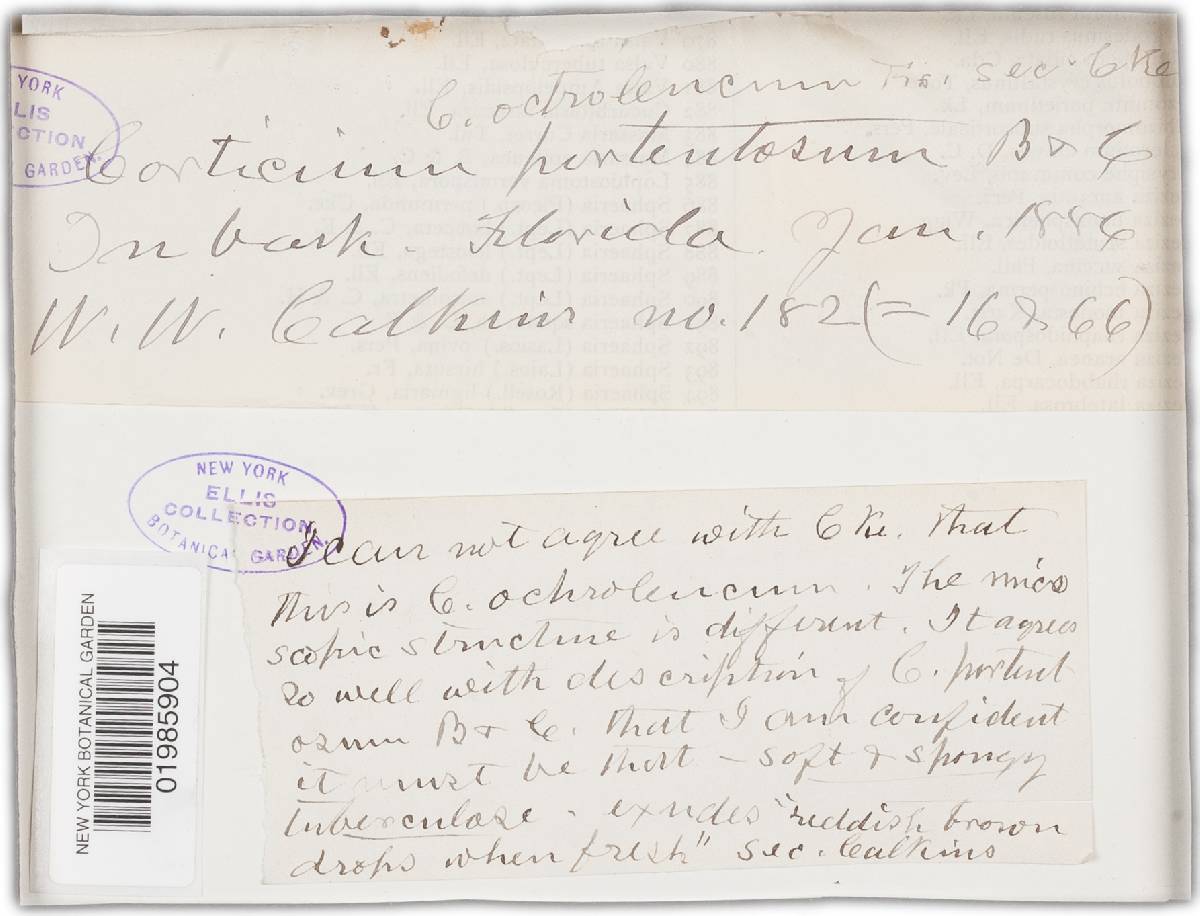 C. octroleucum Fr. sec. Cke
YORK
LIS
CTION
GARDEN.
Corticium portentosum B & C
On bark - Florida. Jan. 1886
W. W. Calkins no. 182 (= 16 & 66)
NEW YORK
ELLIS
COLLECTION
BOTANICAL GARDEN.
I can not agree with Cke. that
this is C. ochroleucum. The micro
scopic structure is different. It agrees
so well with description of C. portent
osum B & C. that I am confident
it must be that - soft & spongy
tuberculose - exudes "reddish brown
drops when fresh" sec. Calkins
NEW YORK BOTANICAL GARDEN
01985904